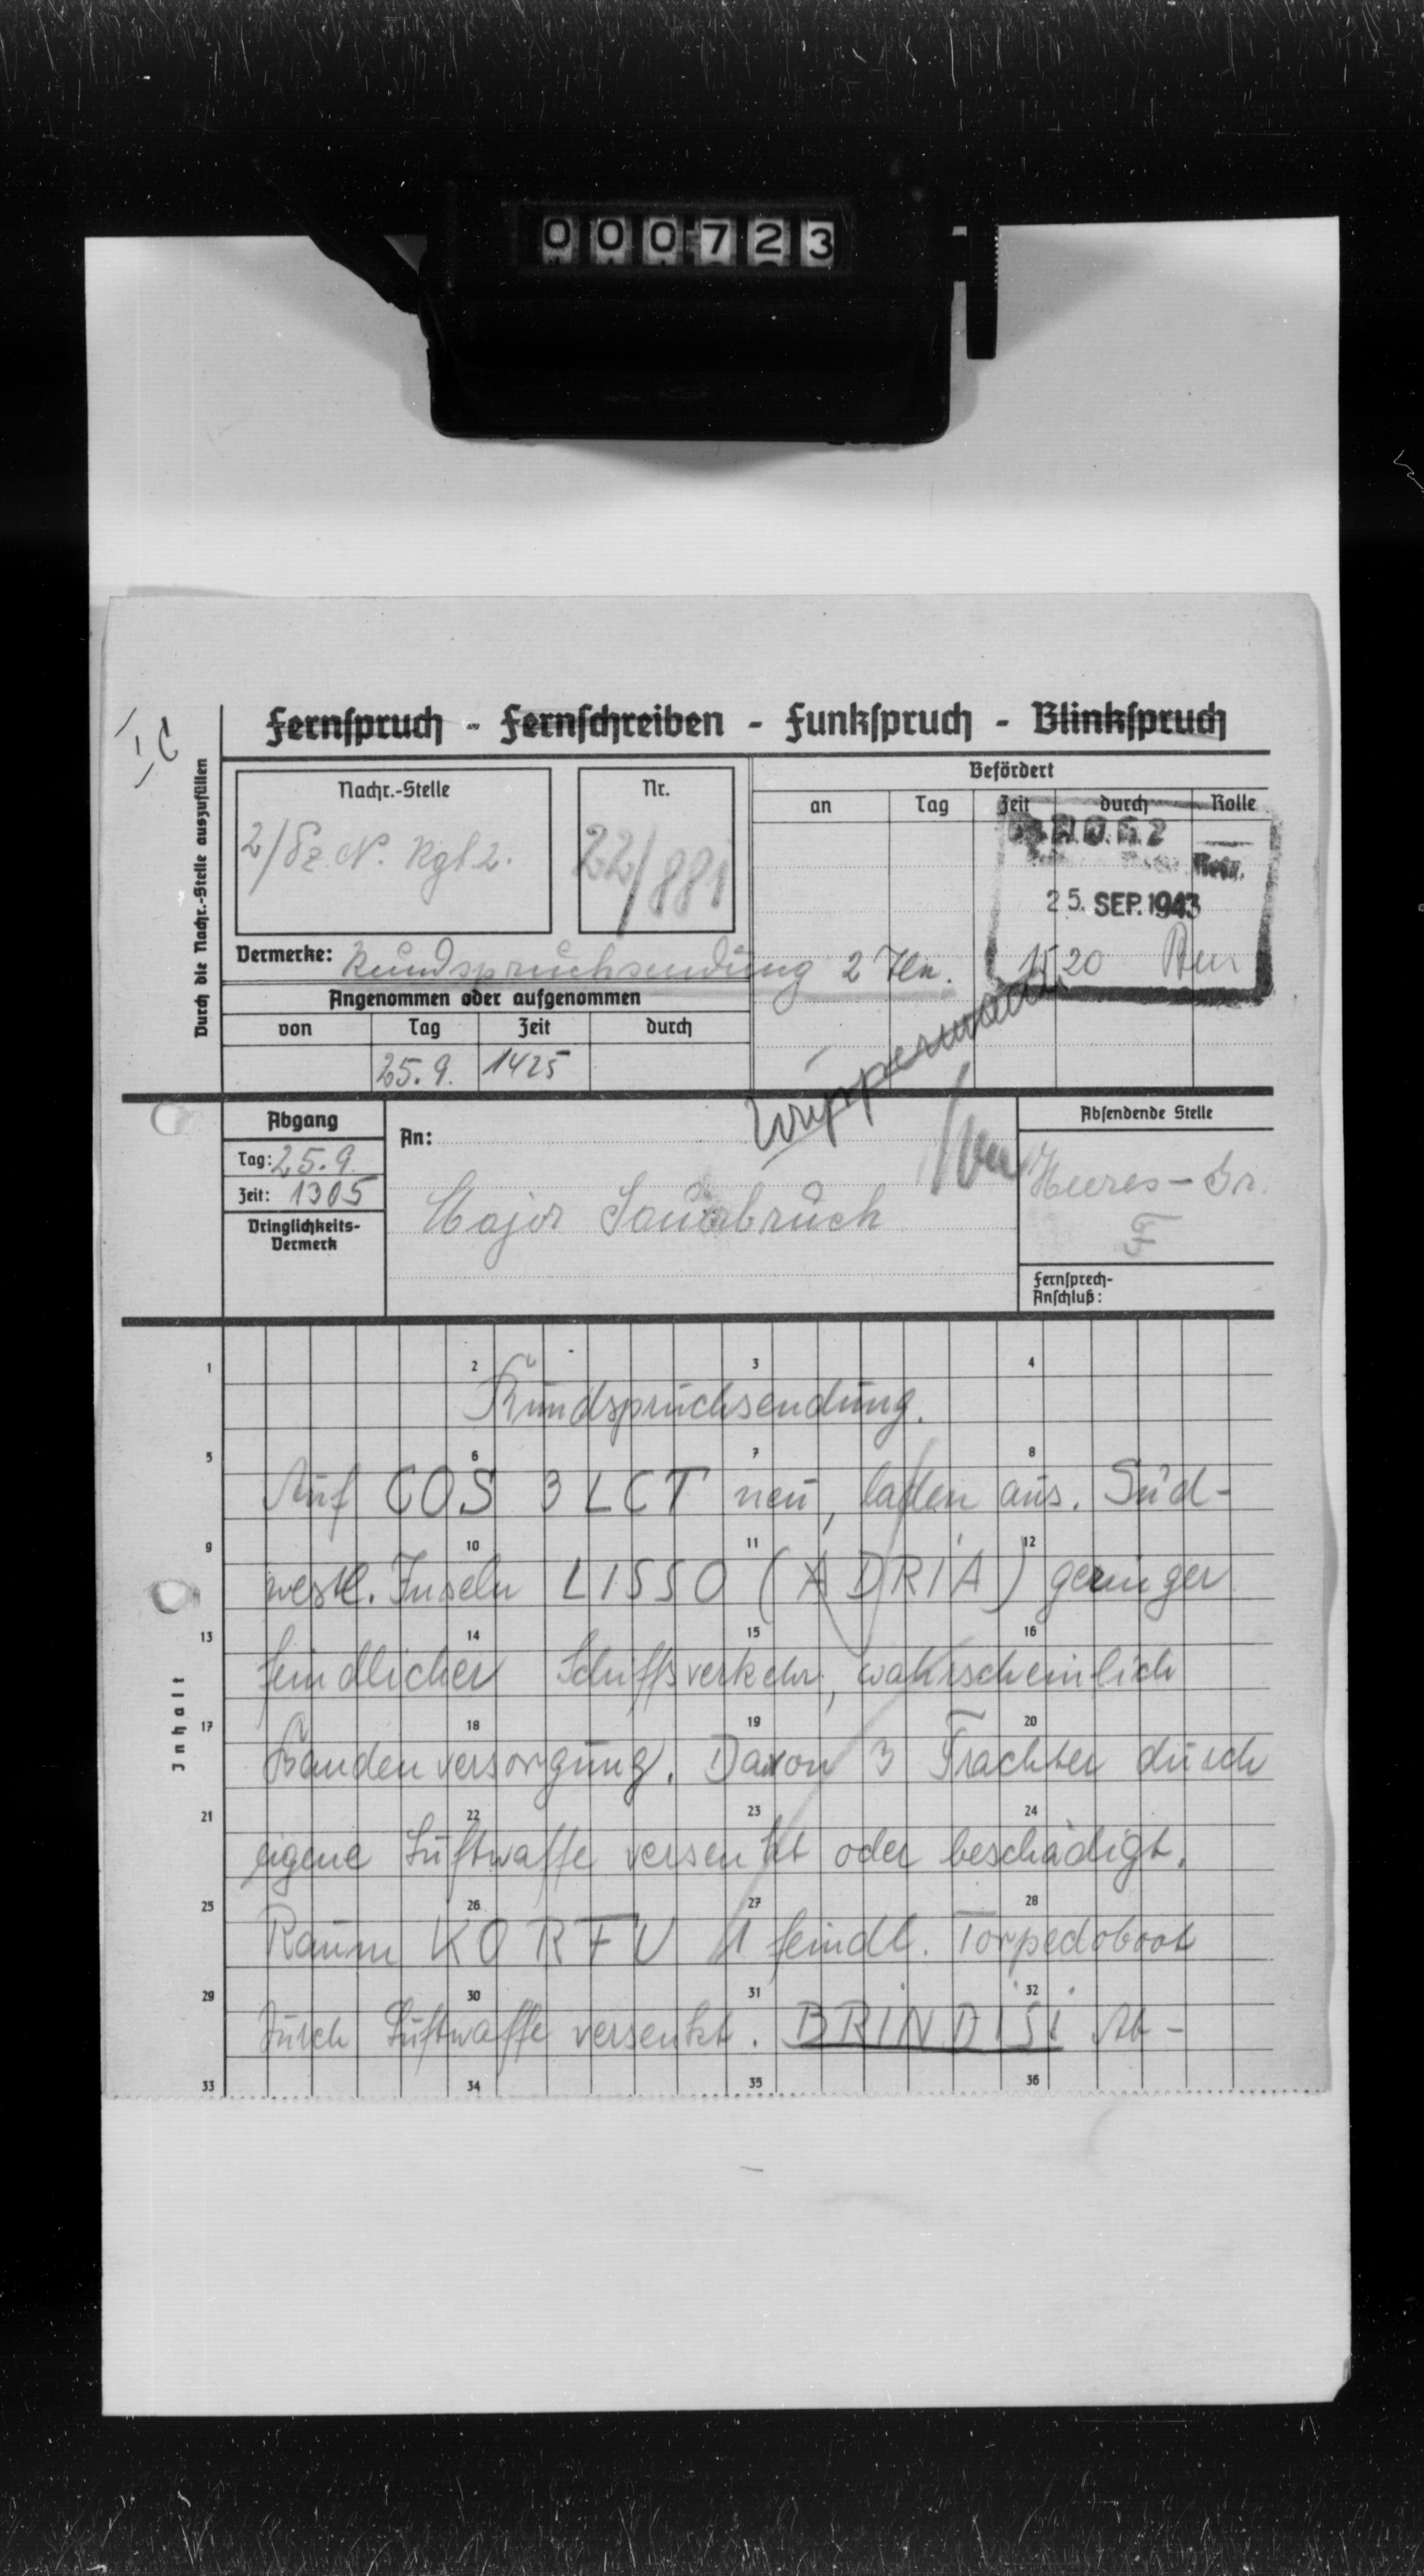 000723
Ic
Fernspruch - Fernschreiben - Funkspruch - Blinkspruch
Durch die Nachr.-Stelle auszufüllen
Nachr.-Stelle
2/Pz. N. Rgt 2.
Nr.
22/881
Befördert
an Tag Zeit durch Rolle
25. SEP. 1943
1520
Vermerke: Rundspruchsendung 2 Tln.
Angenommen oder aufgenommen
von Tag Zeit durch
25.9. 1425
Wuppermann
Abgang
Tag: 25.9.
Zeit: 1305
Dringlichkeits-
Vermerk
An:
Major Sauerbruch
Absendende Stelle
Heeres-Gr.
F
Fernsprech-
Anschluß:
Inhalt
1 2 3 4
Rundspruchsendung.
5 6 7 8
Auf COS 3 LCT neu, laden aus. Süd-
9 10 11 12
westl. Inseln LISSO (ADRIA) geringer
13 14 15 16
feindlicher Schiffsverkehr, wahrscheinlich
17 18 19 20
Bandenversorgung. Davon 3 Frachter durch
21 22 23 24
eigene Luftwaffe versenkt oder beschädigt.
25 26 27 28
Raum KORFU 1 feindl. Torpedoboot
29 30 31 32
durch Luftwaffe versenkt. BRINDISI Ab-
33 34 35 36